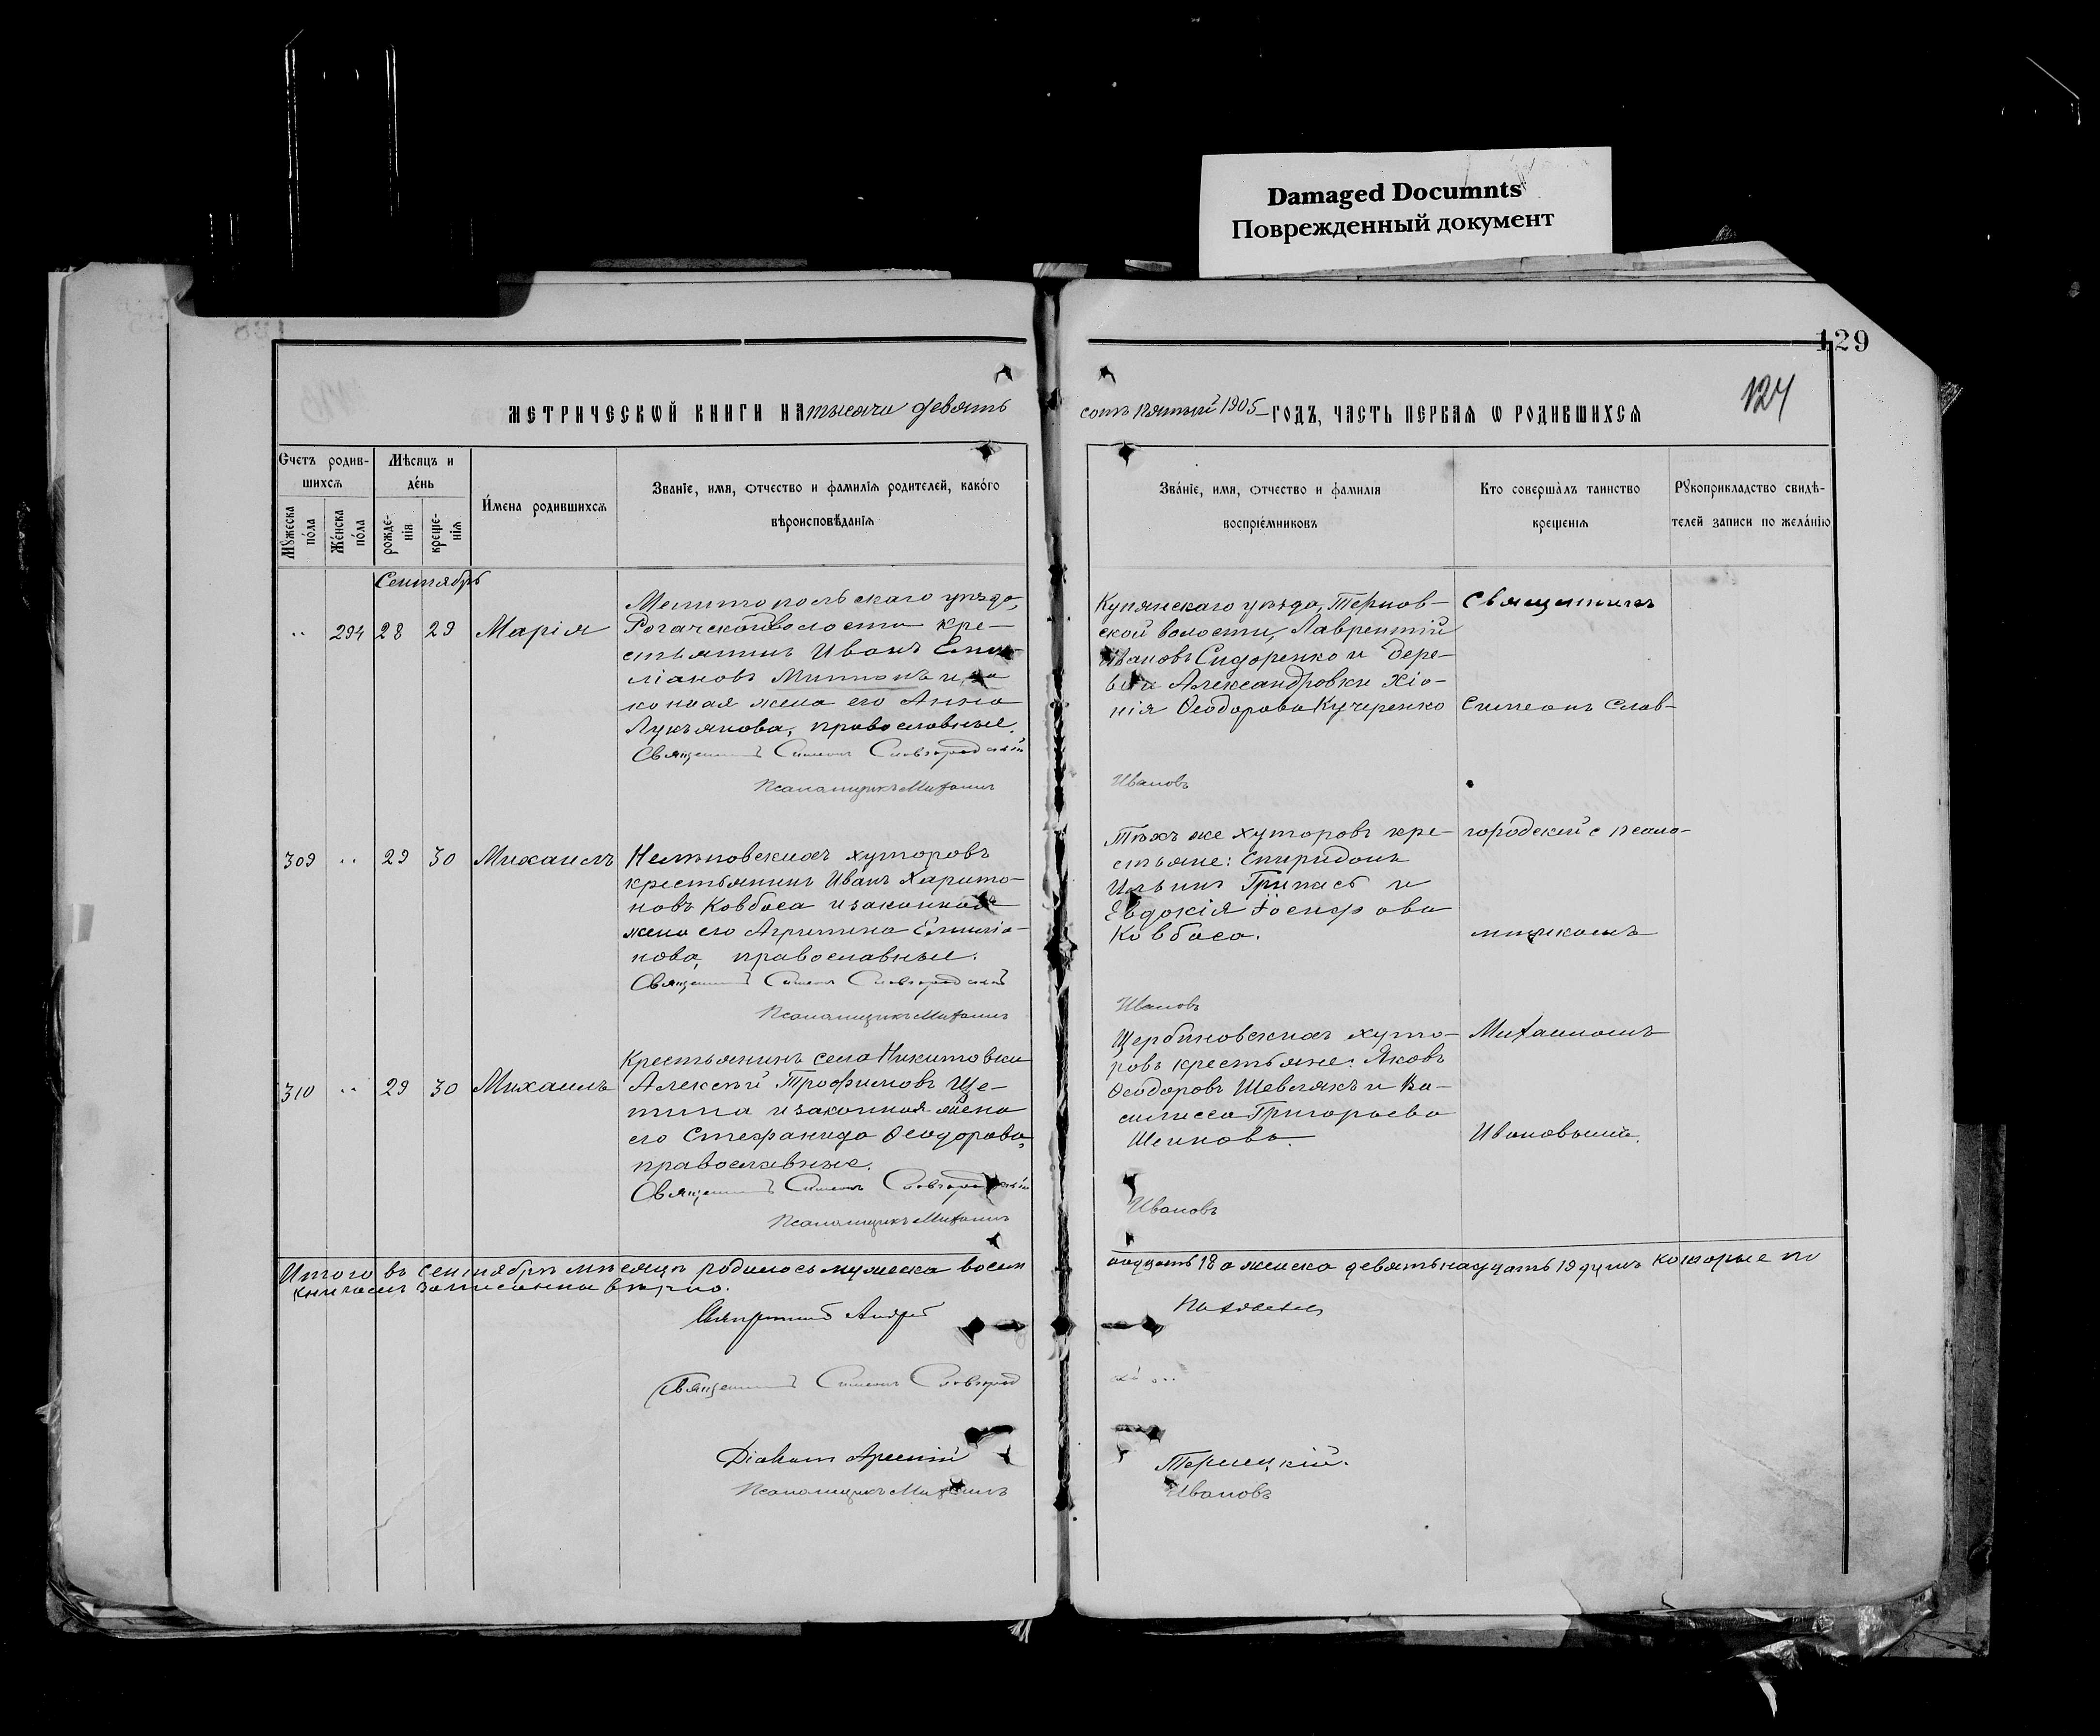 Damaged Documnts
Поврежденный документ
129
124
МЕТРИЧЕСКОЙ КНИГИ НА тысяча девять
сотъ пятый 1905 ГОДЪ, ЧАСТЬ ПЕРВАЯ Ѡ РОДИВШИХСЯ
Счетъ родив-
шихся
Мѣсяцъ и
день
Имена родившихся
Званіе, имя, отчество и фамилія родителей, какого
вѣроисповѣданія
Мужеска
пола
Женска
пола
рожде-
нія
креще-
нія
Званіе, имя, отчество и фамилія
воспріемниковъ
Кто совершалъ таинство
крещенія
Рукоприкладство свидѣ-
телей записи по желанію
Сентябрь
.. 294 28 29 Марія
Мелитопольскаго уѣзда,
Рогачской волости кре-
стьянинъ Иванъ Еми-
ліановъ и за
конная жена его Анна
Лукьянова, православные.
Священникъ Симеонъ Славгородскій
Псаломщикъ Митрофанъ
Купянскаго уѣзда, Тернов-
ской волости, Лаврентій
Ивановъ Сидоренко и дере-
вни Александровки Хіо-
нія Ѳеодорова Кучеренко
Ивановъ
Священникъ
Симеонъ Слав-
309 .. 29 30 Михаилъ
хуторовъ
крестьянинъ Иванъ Харито-
новъ Ковбаса и законная
жена его Агриппина Емиліа-
нова, православные.
Священникъ Симеонъ Славгородскій
Псаломщикъ Митрофанъ
Тѣхъ же хуторовъ кре-
стьяне: Спиридонъ
Ильинъ и
Евдокія Іосифова
Ковбаса.
Ивановъ
городскій с псало-
мщикомъ
310 .. 29 30 Михаилъ
Крестьянинъ села Никитовки
Алексѣй Трофимовъ Ще-
тина и законная жена
его Стефанида Ѳеодорова,
православные.
Священникъ Симеонъ Славгородскій
Псаломщикъ Митрофанъ
Щербиновскихъ хуто-
ровъ крестьяне: Яковъ
Ѳеодоровъ Шевлякъ и Ва-
силисса Григорьева
Ивановъ
Митрофаномъ
Ивановымъ.
Итого въ сентябрѣ мѣсяцѣ родилось мужеска восем
надцать 18 а женска девятьнадцать 19 душъ которые по
книгамъ записаны вѣрно.
Священникъ Андрей
Священникъ Симеонъ Славгород
Діаконъ Арсеній
Терлецкій.
Псаломщикъ Митрофанъ
Ивановъ